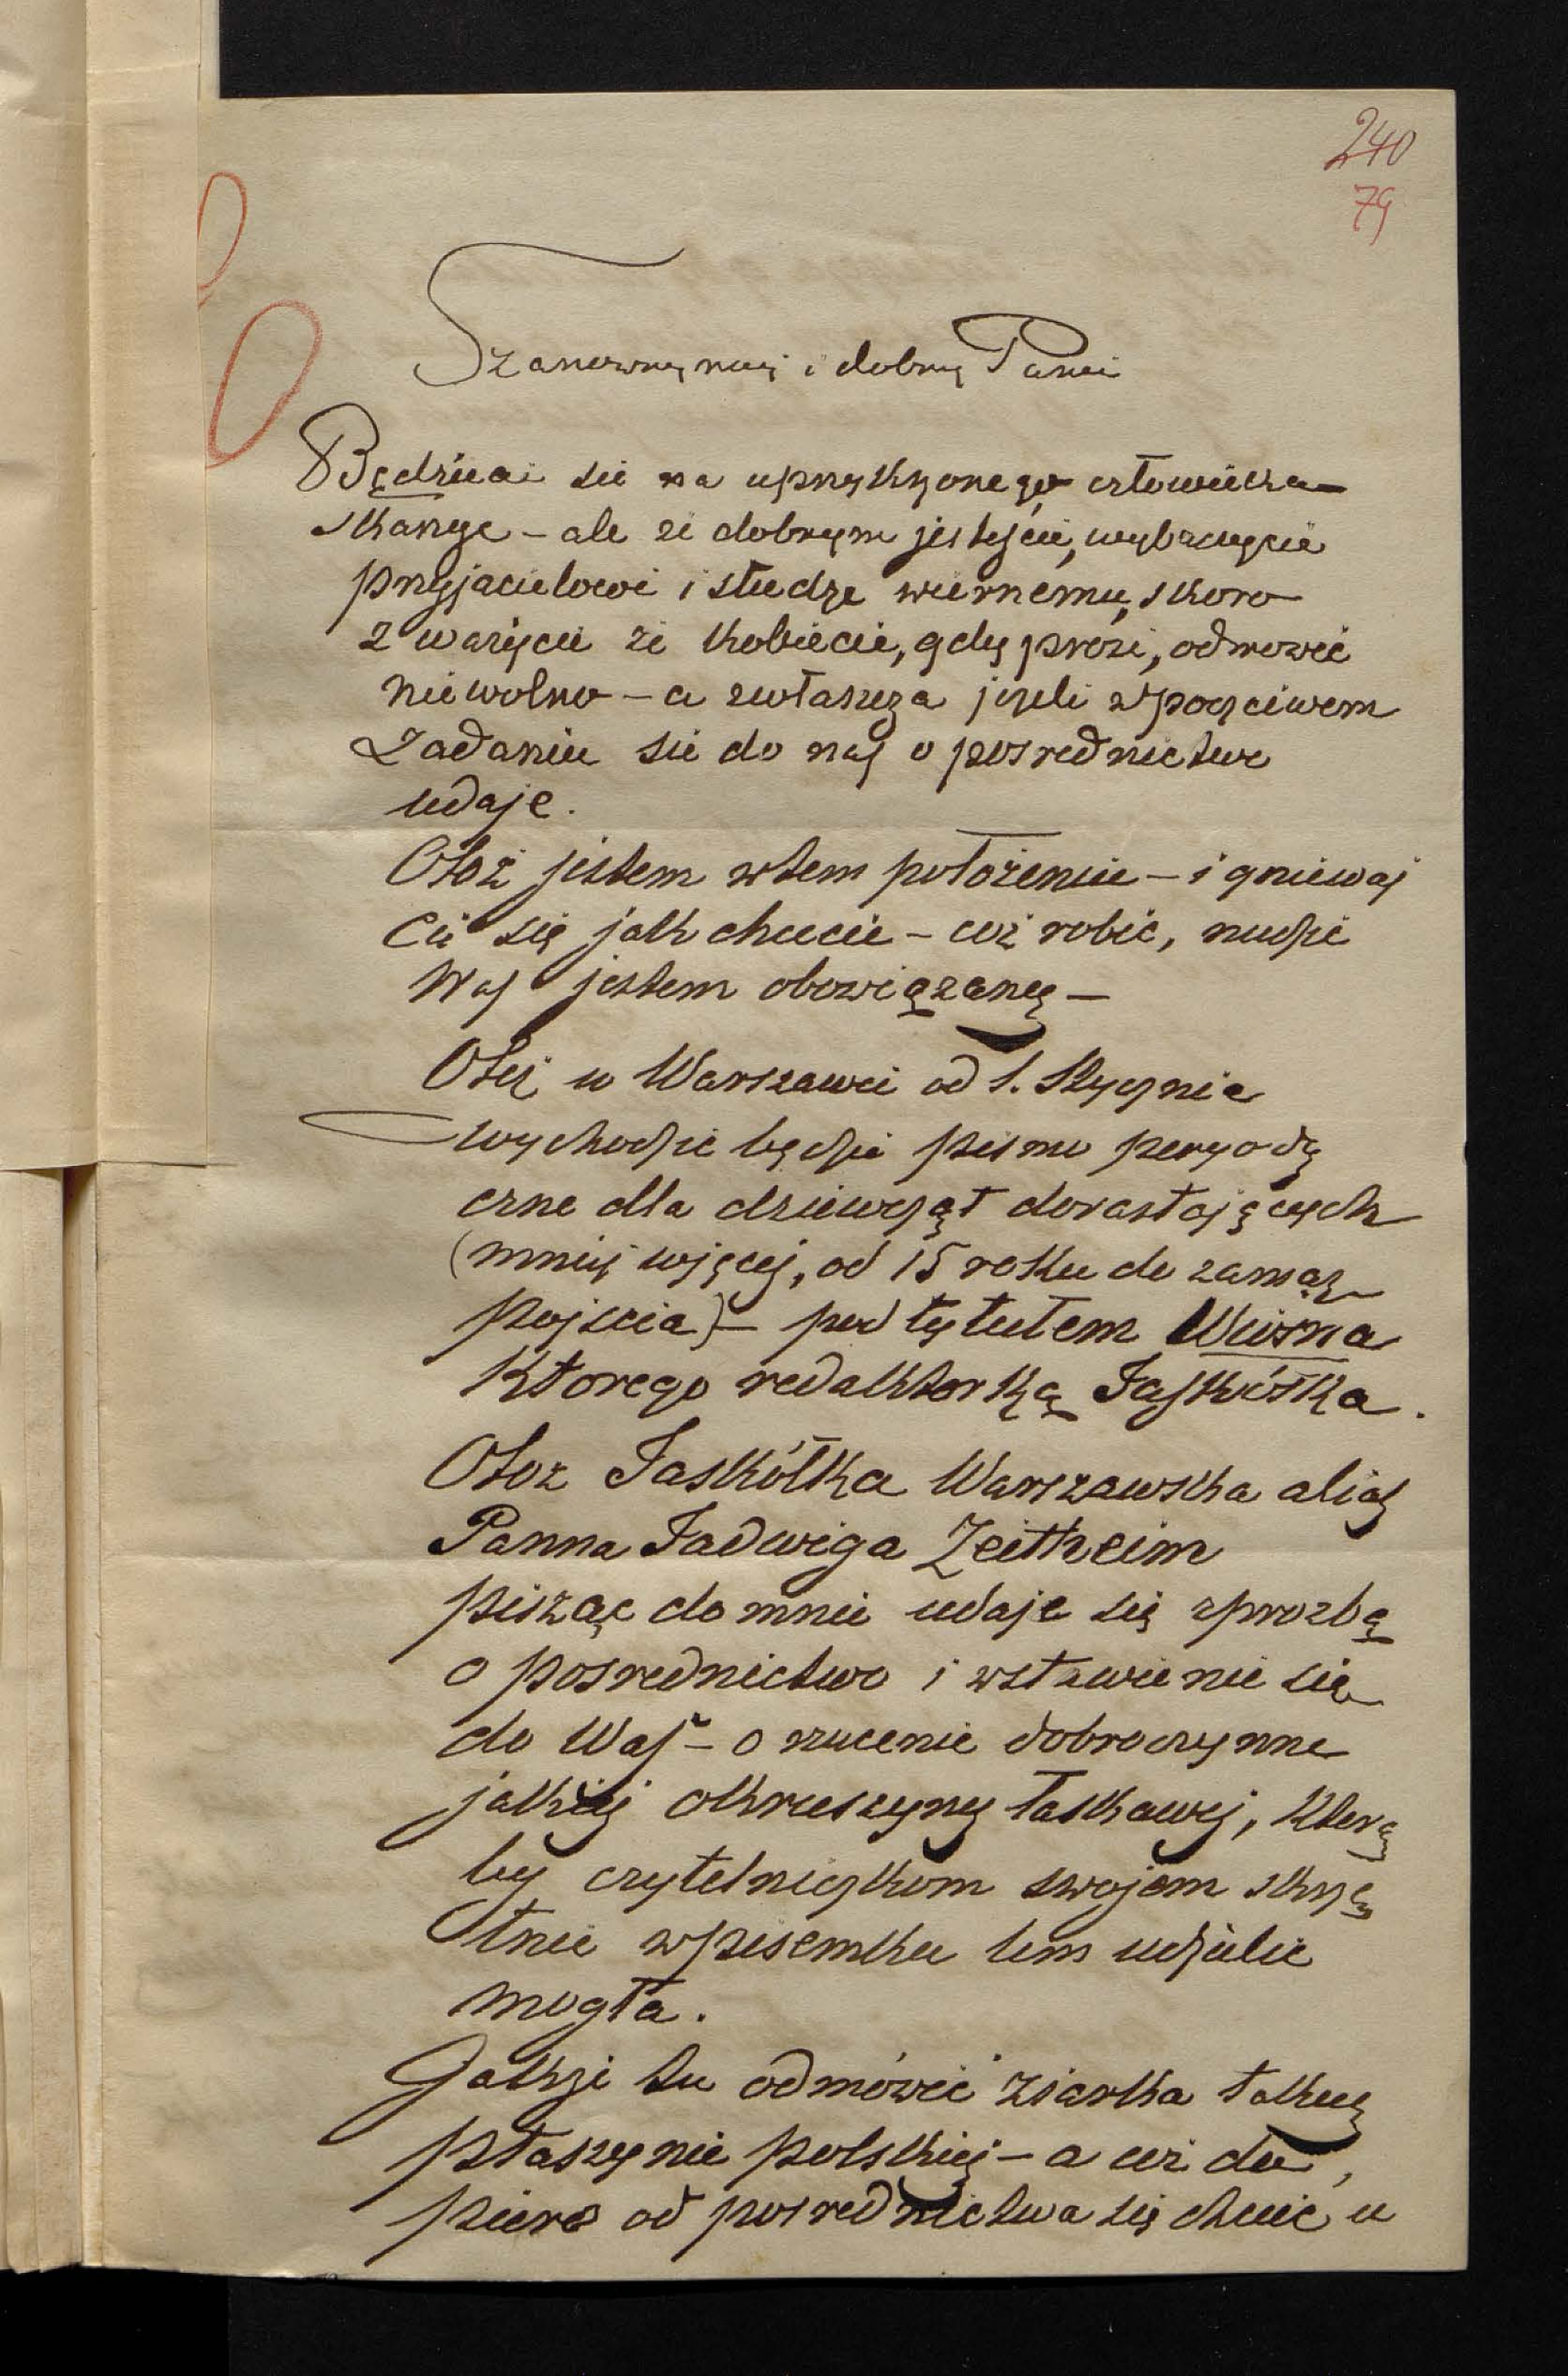 240
79
Szanowny mój i dobry Panie
Będziecie się na uprzykszonego człowieka
skarżyć – ale że dobrym jesteście, wybaczycie
przyjacielowi i słudze wiernemu, skoro
zważycie że kobiecie, gdy prosi, odmówić
nie wolno – a zwłaszcza jeżeli w poczciwem
zadaniu się do nas o posrednictwo
udaje.
Otoż jestem w tem położeniu – i gniewaj
cie się jak chcecie – coż robić, nudzić
Was jestem obowiązany –
Otoż w Warszawie od 1. Stycznia
wychodzić będzie pismo peryody
czne dla dziewcząt dorastających
(mniej więcej, od 15 roku do zamąż
pojscia) – pod tytułem Wiosna
Ktorego redaktorką Jaskółka.
Otoż Jaskółka Warszawska alias
Panna Jadwiga Zeitheim
pisząc do mnie udaje się z prozbą
o posrednictwo i wstawienie się
do Was – o rzucenie dobroczynne
jakiej okruszyny łaskawej, ktorą
by czytelniczkom swojem skrzę
tnie w pisemku tem udzielić
mogła.
Jakże tu odmówić ziarka takiej
ptaszynie polskiej – a coż do
piero od posrednictwa się chcieć u